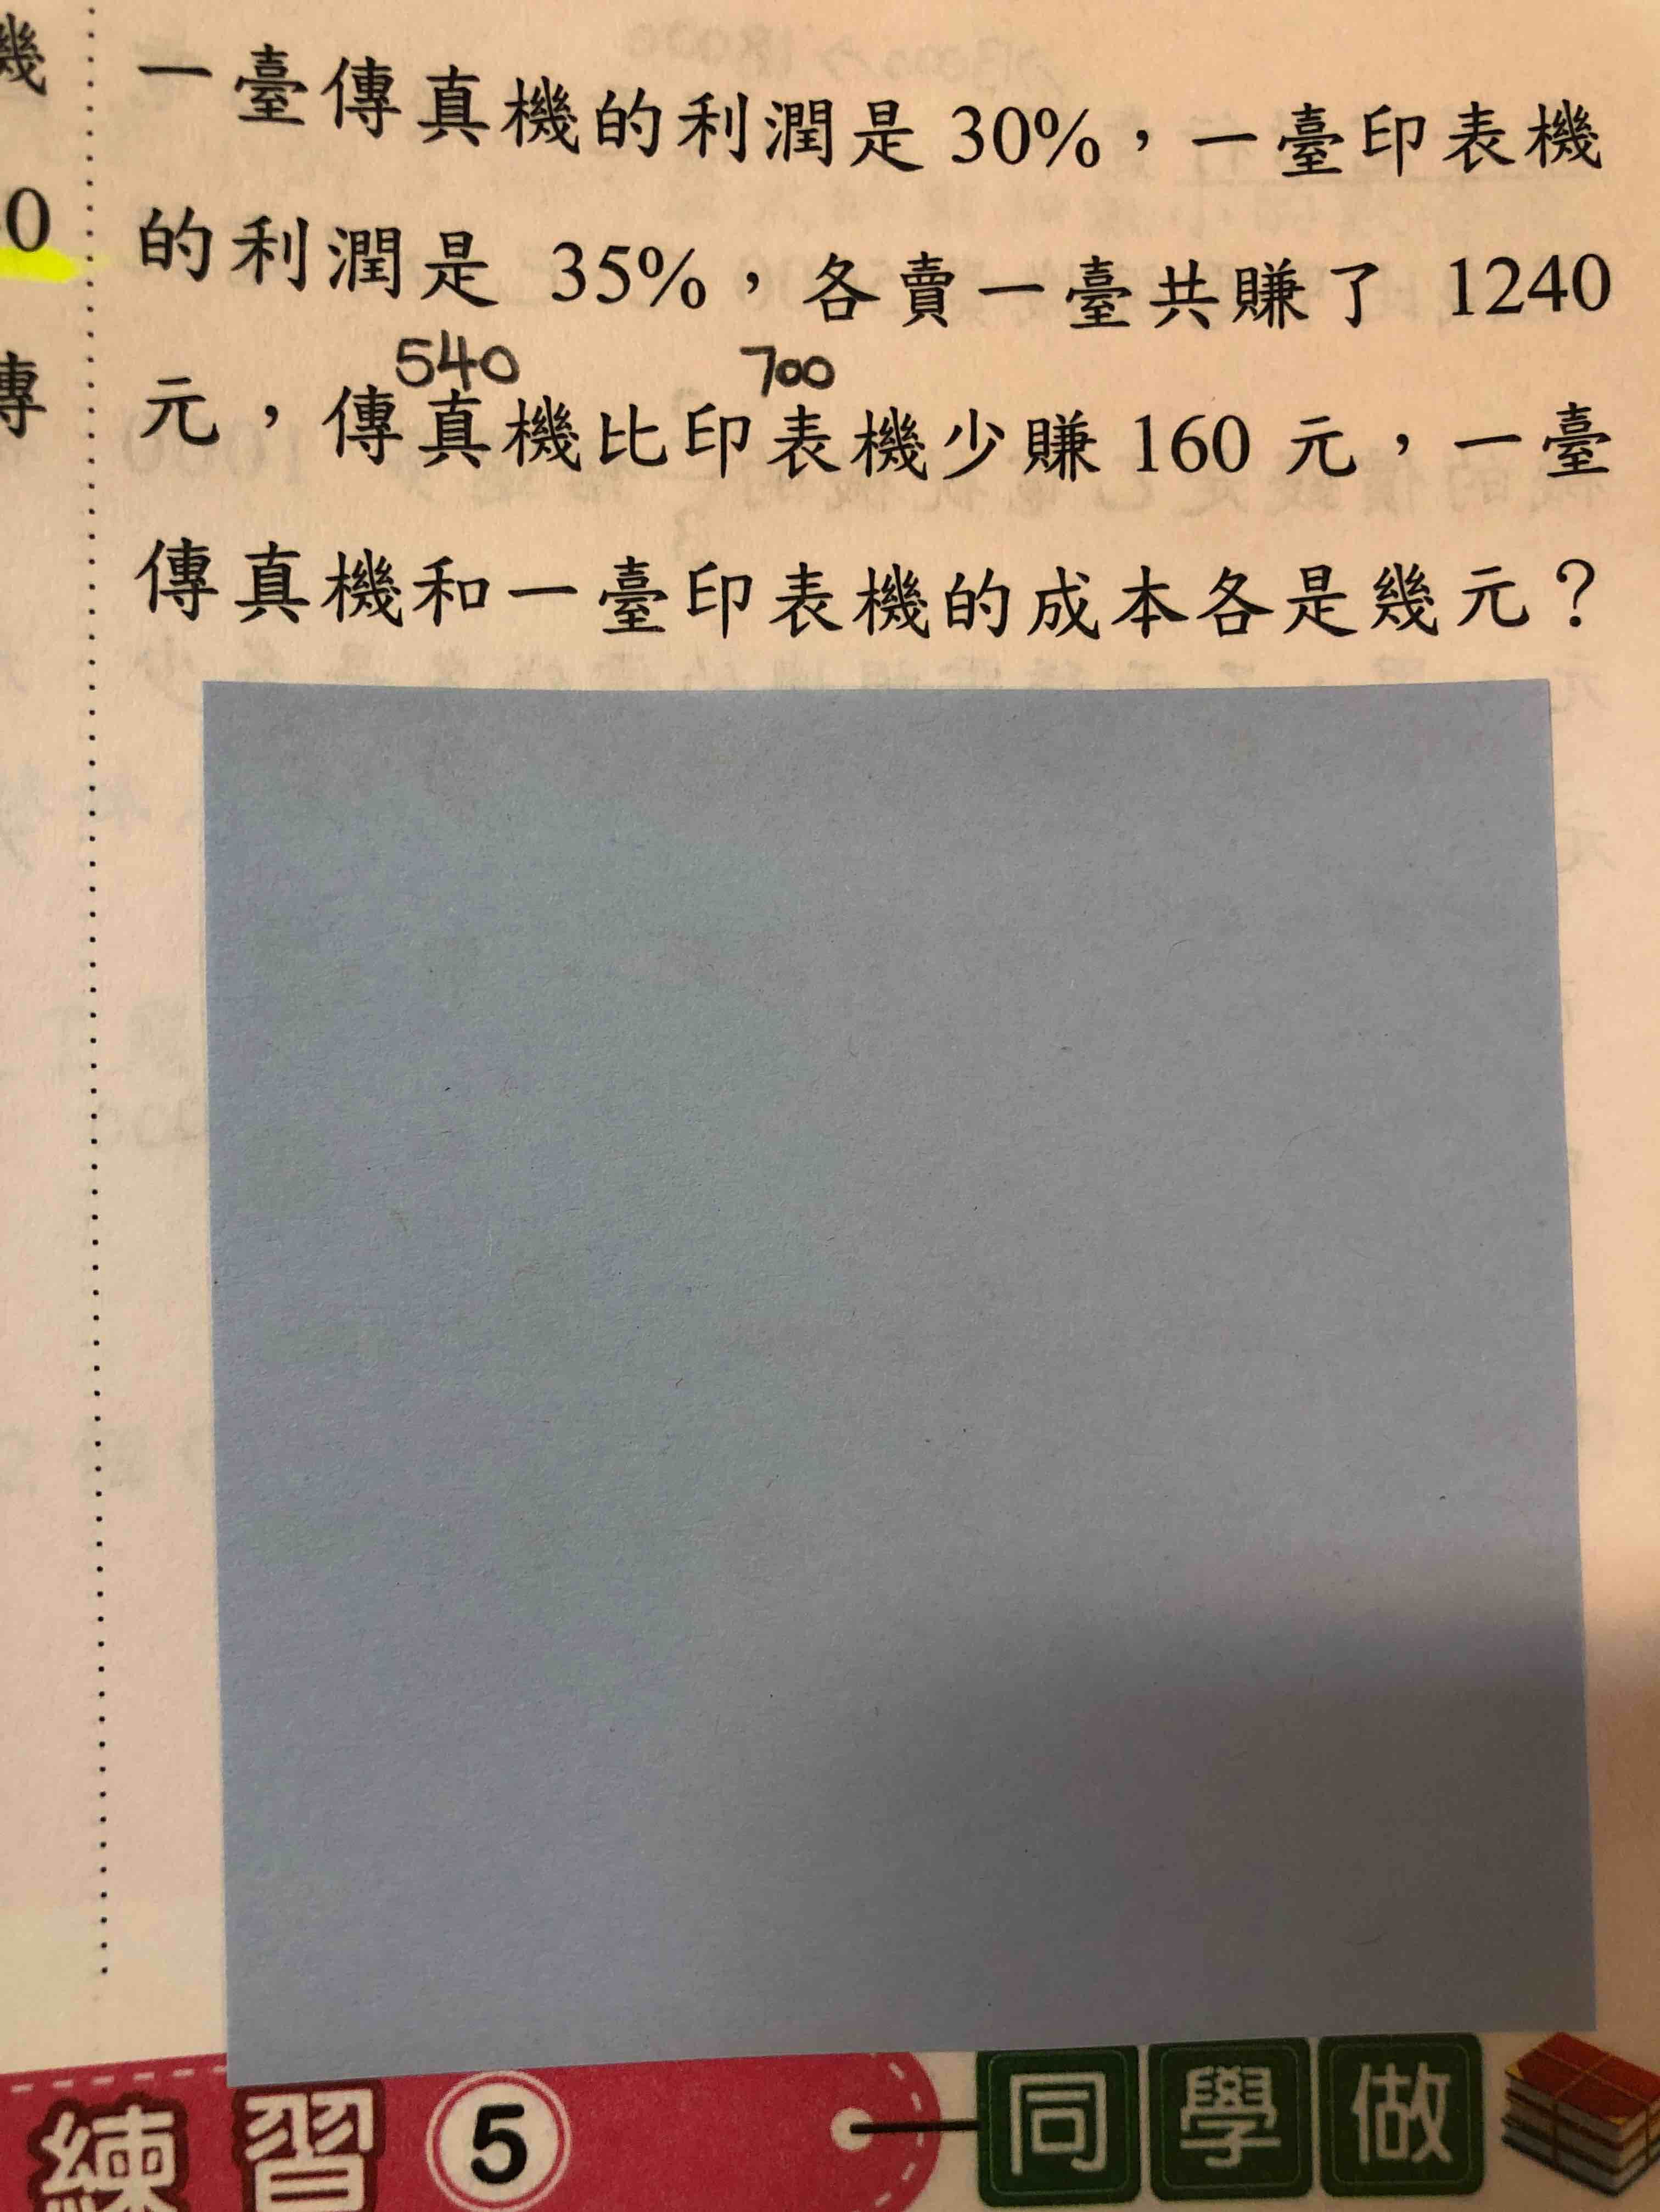 一臺傳真機的利潤是 30%，一臺印表機
的利潤是 35%，各賣一臺共賺了 1240
540 700
元，傳真機比印表機少賺 160 元，一臺
傳真機和一臺印表機的成本各是幾元？
機
0
傳
練習 5 同學做